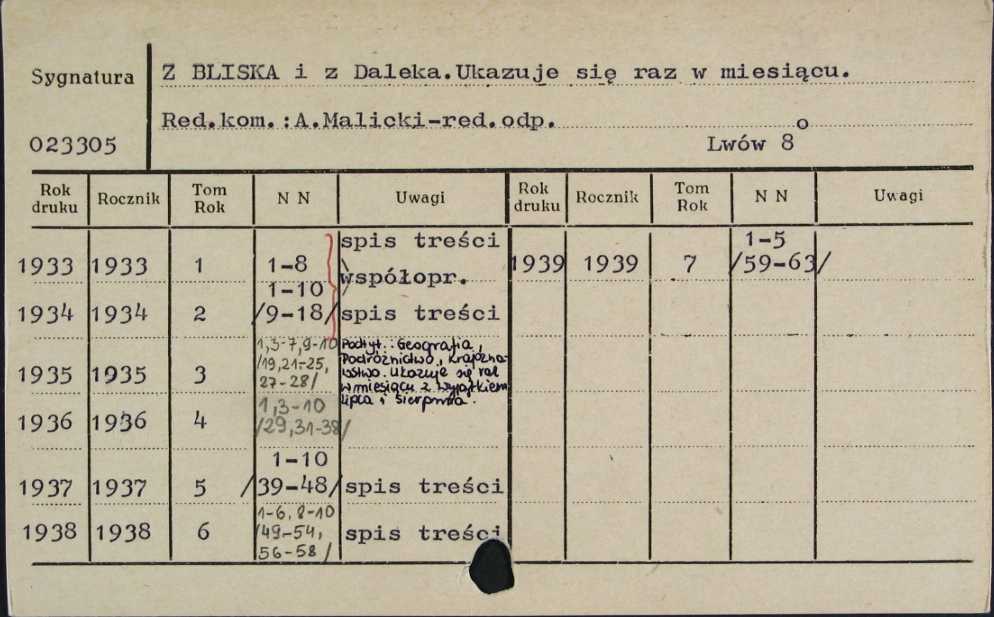 Sygnatura
Z BLISKA i z Daleka.Ukazuje się raz w miesiącu.
Red.kom.:A.Malicki-red.odp.
023305
Lwów 8o
Rok druku Rocznik Tom Rok N N Uwagi Rok druku Rocznik Tom Rok N N Uwagi
1933 1933 1 1-8 spis treści współopr. 1939 1939 7 1-5 /59-63/
1934 1934 2 1-10 /9-18/ spis treści
1935 1935 3 1,3-7,9-10 /19,21-25, 27-28/ Podtyt.: Geografia, Podróżnictwo, Krajoznawstwo. Ukazuje się raz w miesiącu z wyjątkiem lipca i sierpnia.
1936 1936 4 1,3-10 /29,31-38/
1937 1937 5 1-10 /39-48/ spis treści
1938 1938 6 1-6, 8-10 /49-54, 56-58/ spis treści